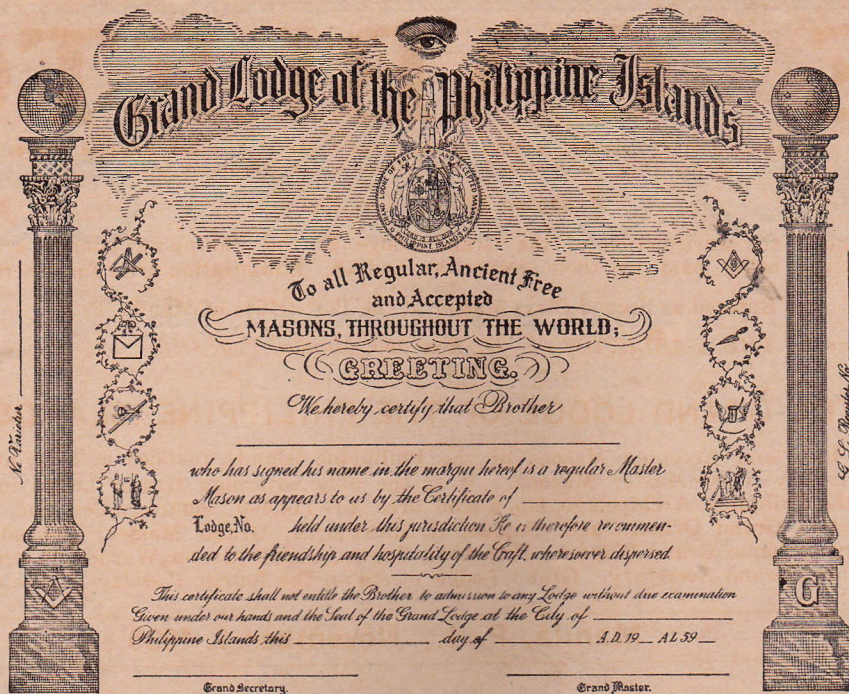 Grand Lodge of the Philippine Islands
GRAND LODGE OF FREE AND ACCEPTED MASONS
PHILIPPINE ISLANDS
To all Regular, Ancient Free
and Accepted
MASONS, THROUGHOUT THE WORLD;
GREETING.
We hereby certify that Brother
who has signed his name in the margin hereof is a regular Master
Mason as appears to us by the Certificate of
Lodge, No. held under this jurisdiction He is therefore recommen-
ded to the friendship and hospitality of the Craft, wheresoever dispersed
This certificate shall not entitle the Brother to admission to any Lodge without due examination
Given under our hands and the Seal of the Grand Lodge at the City of
Philippine Islands this day of A.D. 19 A L 59
Grand Secretary.
Grand Master.
Ne Varietur
G. L. Register No
G
G